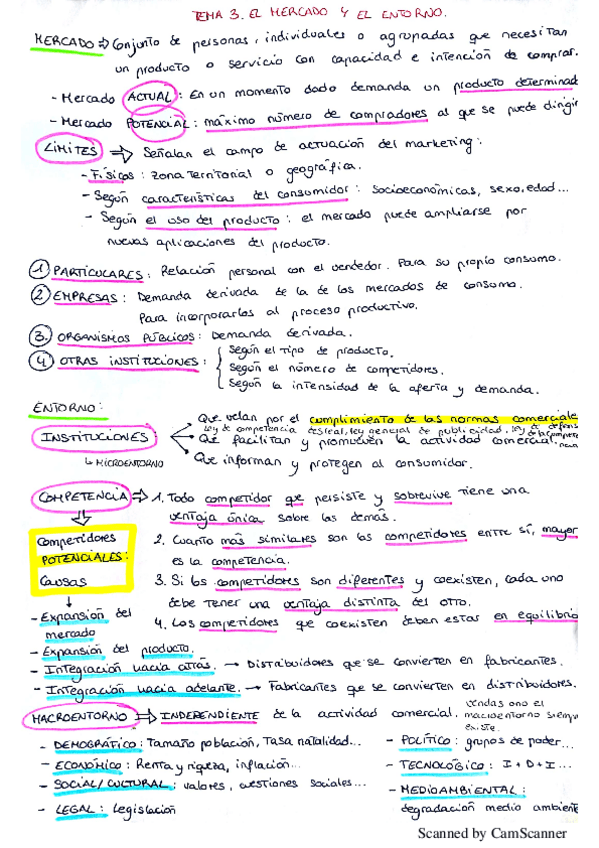 TEMA 3. EL MERCADO Y EL ENTORNO.
MERCADO ⇒ Conjunto de personas, individuales o agrupadas que necesitan
un producto o servicio con capacidad e intención de comprar.
- Mercado ACTUAL: En un momento dado demanda un producto determinad
- Mercado POTENCIAL: máximo número de compradores al que se puede dirigir
LÍMITES ⇒ Señalan el campo de actuación del marketing:
- Físicos: zona territorial o geográfica.
- Según características del consumidor: socioeconómicas, sexo, edad...
- Según el uso del producto: el mercado puede ampliarse por
nuevas aplicaciones del producto.
1 PARTICULARES: Relación personal con el vendedor. Para su propio consumo.
2 EMPRESAS: Demanda derivada de la de los mercados de consumo.
Para incorporarlos al proceso productivo.
3. ORGANISMOS PÚBLICOS: Demanda derivada.
4 OTRAS INSTITUCIONES: Según el tipo de producto.
Según el número de competidores.
Según la intensidad de la oferta y demanda.
ENTORNO:
INSTITUCIONES
↳ MICROENTORNO
Que velan por el cumplimiento de las normas comerciale
ley de competencia desleal, ley general de publicidad, ley de defensa
de la compete
Que facilitan y promueven la actividad comercial.
Que informan y protegen al consumidor.
COMPETENCIA ⇒ 1. Todo competidor que persiste y sobrevive tiene una
ventaja única sobre los demás.
2. Cuanto más similares son los competidores entre sí, mayor
es la competencia.
3. Si los competidores son diferentes y coexisten, cada uno
debe tener una ventaja distinta del otro.
4. Los competidores que coexisten deben estar en equilibrio
Competidores
POTENCIALES:
Causas
- Expansión del
mercado
- Expansión del producto.
- Integración hacia atrás. → Distribuidores que se convierten en fabricantes.
- Integración hacia adelante. → Fabricantes que se convierten en distribuidores.
MACROENTORNO ⇒ INDEPENDIENTE de la actividad comercial. vendas o no el
macroentorno siempre
existe.
- DEMOGRÁFICO: Tamaño población, Tasa natalidad...
- ECONÓMICO: Renta y riqueza, inflación...
- SOCIAL/CULTURAL: valores, cuestiones sociales...
- LEGAL: Legislación
- POLÍTICO: grupos de poder...
- TECNOLÓGICO: I+D+I...
- MEDIOAMBIENTAL:
degradación medio ambiente
Scanned by CamScanner